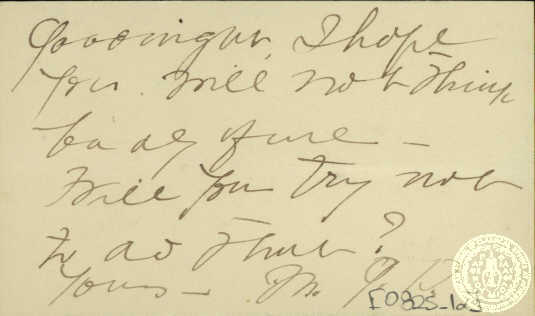 Goosington, I hope
you will not think
badly of me —
Will you try not
to do that?
Yours — M.
E0823-1a3